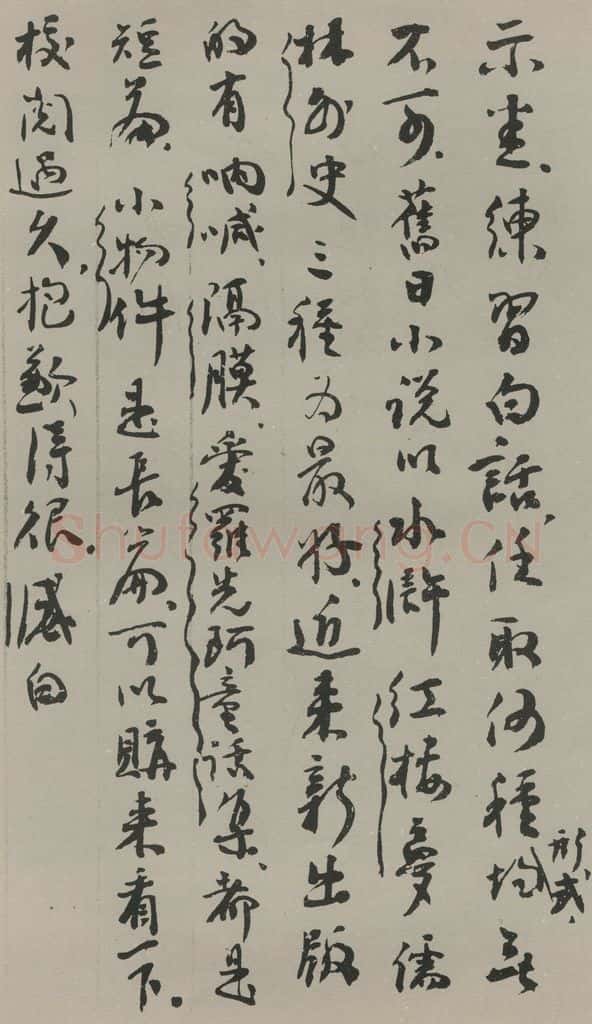 示悉、練習白話、任取何種形式、均無
不可、舊日小説以水滸紅樓夢儒
林外史三種为最好、近来新出版
的有吶喊、隔膜、愛羅先珂童話集、都是
短篇、小物件是長篇、可以購来看一下。
校閱過久、抱歉得很、白
Shufawang.CN